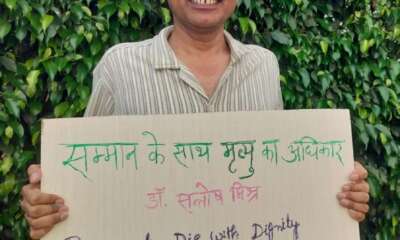 सम्मान के साथ मृत्यु का अधिकार
डॉ. सन्तोष मिश्र
Die with Dignity